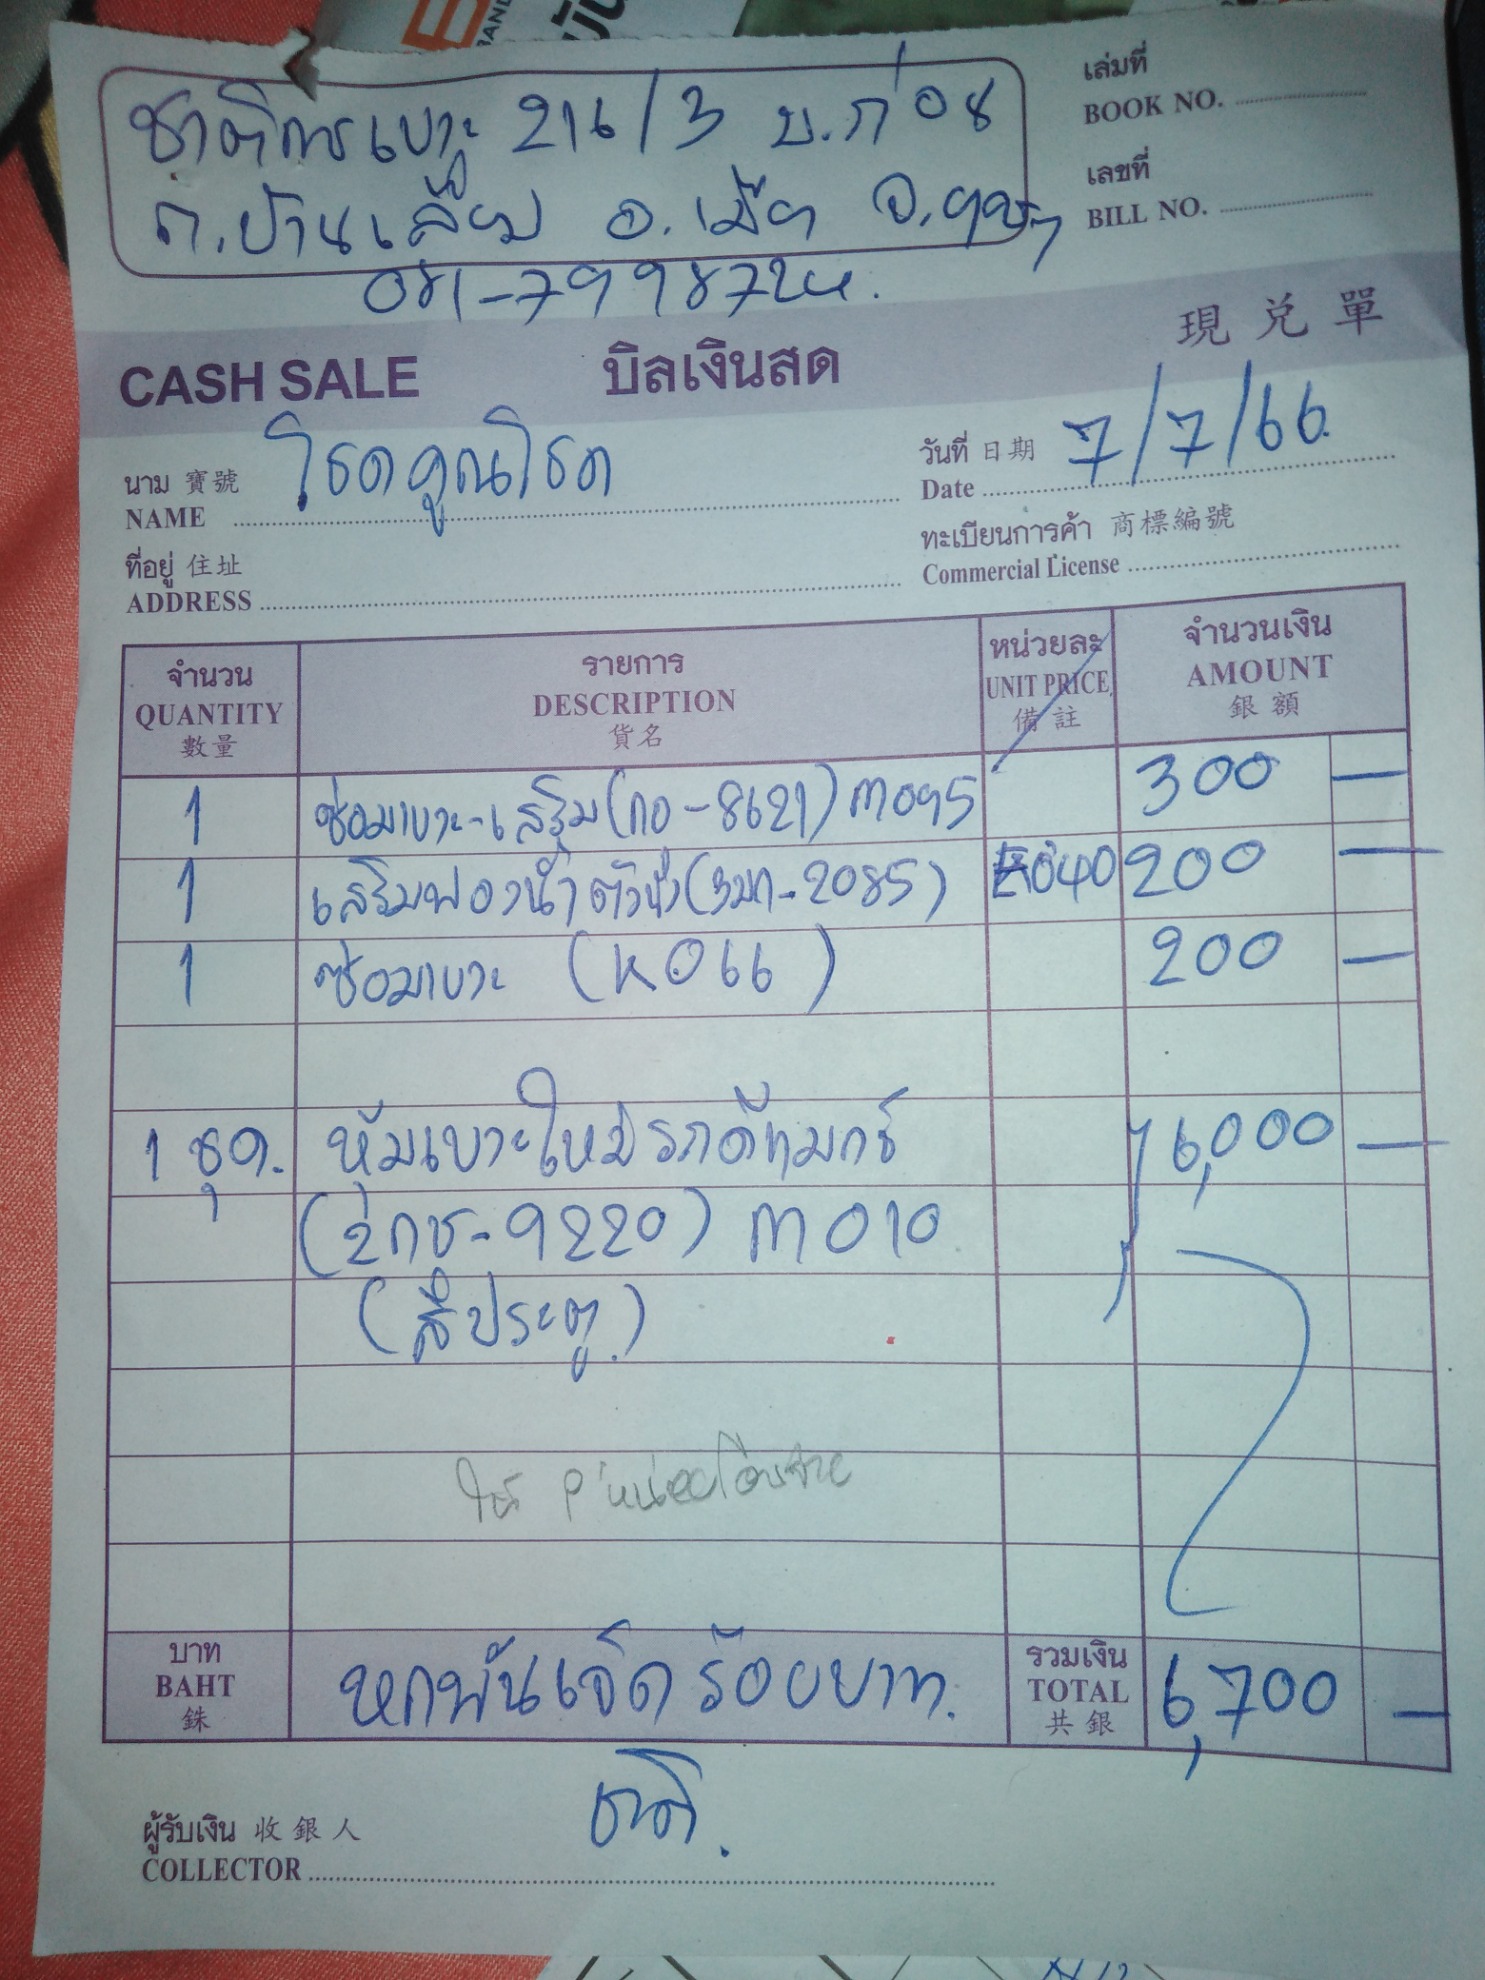 ชาติการเบาะ 216/3 บ.ก่อ 8
ต.บ้านเลื่อม อ.เมือง จ.อุดรฯ
เล่มที่
BOOK NO.
เลขที่
BILL NO.
CASH SALE บิลเงินสด 現兌單
นาม 寶號 โชคคูณโชค
NAME
วันที่ 日期 7/7/66
Date
ที่อยู่ 住址
ADDRESS
ทะเบียนการค้า 商標編號
Commercial License
จำนวน รายการ หน่วยละ จำนวนเงิน
QUANTITY DESCRIPTION UNIT PRICE AMOUNT
數量 貨名 備註 銀額
1 ซ่อมเบาะ-เสริม (กอ-8621) M095 300 —
1 เสริมฟองน้ำตัวนั่ง (3มก-2085) 040 200 —
1 ซ่อมเบาะ (K066) 200 —
1 ชุด. หุ้มเบาะใหม่รถดีแมกซ์ 6,000 —
(2กช-9220) M010
(สี่ประตู)
บาท หกพันเจ็ดร้อยบาท. รวมเงิน 6,700 —
BAHT TOTAL
銖 共銀
ผู้รับเงิน 收銀人 ชาติ.
COLLECTOR